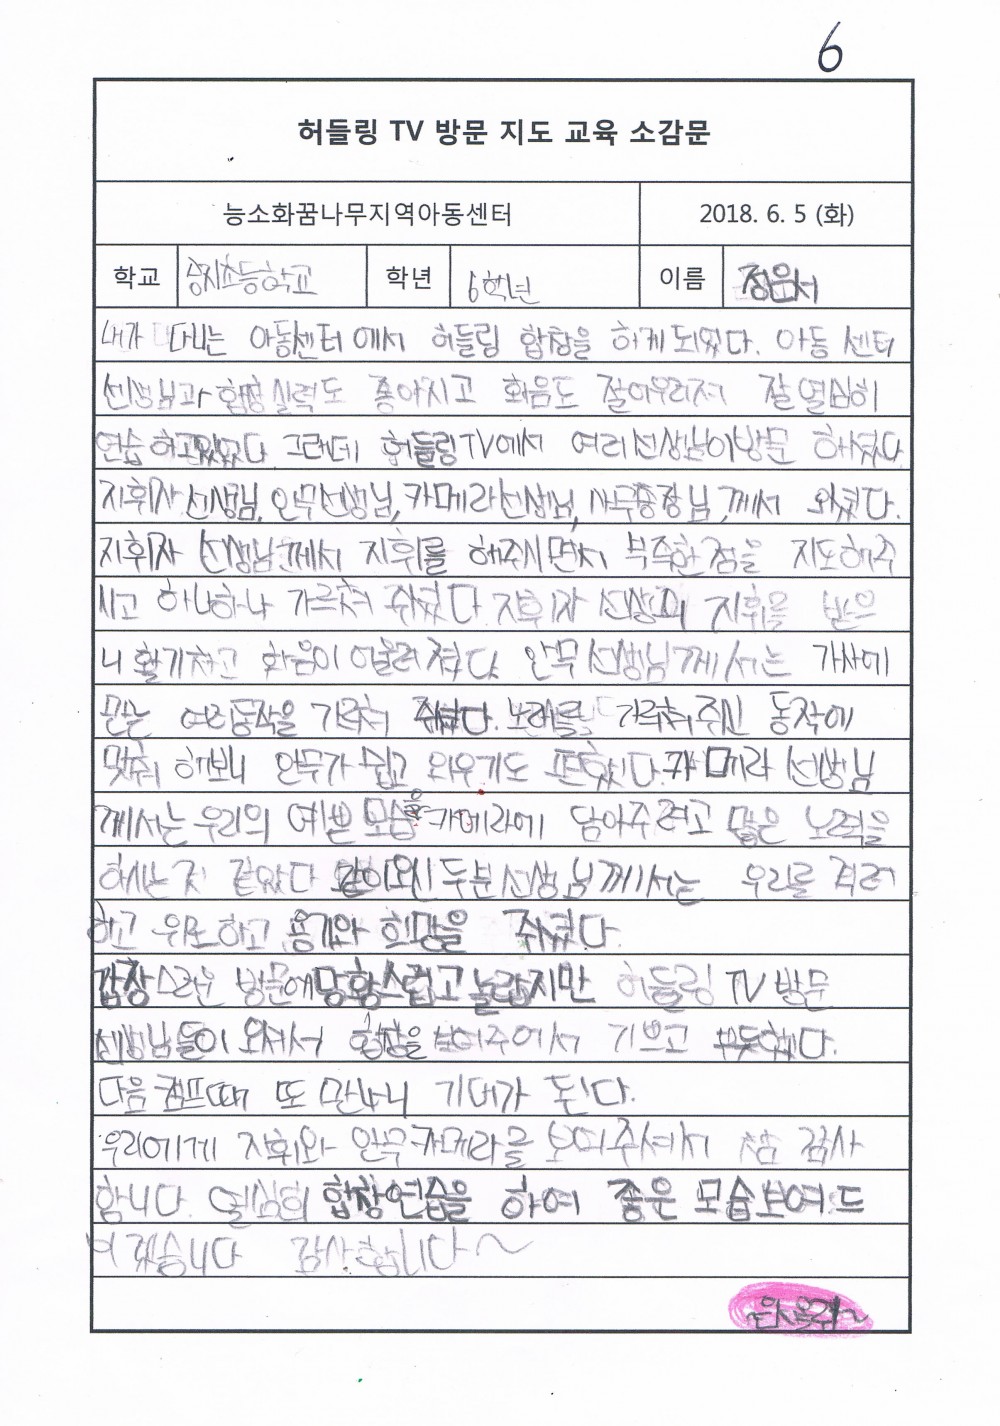 6
허들링 TV 방문 지도 교육 소감문
능소화꿈나무지역아동센터 2018. 6. 5 (화)
학교 초등학교 학년 6학년 이름 정은서
내가 다니는 아동센터에서 허들링 합창을 하게 되었다. 아동 센터
선생님과 합창 실력도 좋아지고 화음도 잘어우러져 잘 열심히
연습 하고있었다 그런데 허들링TV에서 여러선생님이방문 하셨다
지휘자 선생님, 안무선생님, 카메라선생님, 사무총장님께서 오셨다.
지휘자 선생님께서 지휘를 해주시면서 부족한점을 지도해주
시고 하나하나 가르쳐 주셨다 지휘자 선생의 지휘를 받으
니 활기차고 화음이 어울려 졌다 안무선생님께서는 가사에
맞는 여러동작을 가르쳐 주셨다. 노래를 가르쳐주신 동작에
맞춰 해보니 안무가 쉽고 외우기도 편했다. 카메라 선생님
께서는 우리의 예쁜 모습을 카메라에 담아주려고 많은 노력을
하시는 것 같았다 같이오신두분선생님께서는 우리를 격려
하고 위로하고 용기와 희망을 주셨다.
갑작스러운 방문에당황스럽고 놀랐지만 허들링 TV 방문
선생님들이 오셔서 합창을 보여주어서 기쁘고 뿌듯했다.
다음 캠프때 또 만나니 기대가 된다.
우리에게 지휘와 안무카메라를 보여주셔서 참 감사
합니다. 열심히 합창연습을 하여 좋은 모습보여드
리겠습니다 감사합니다~